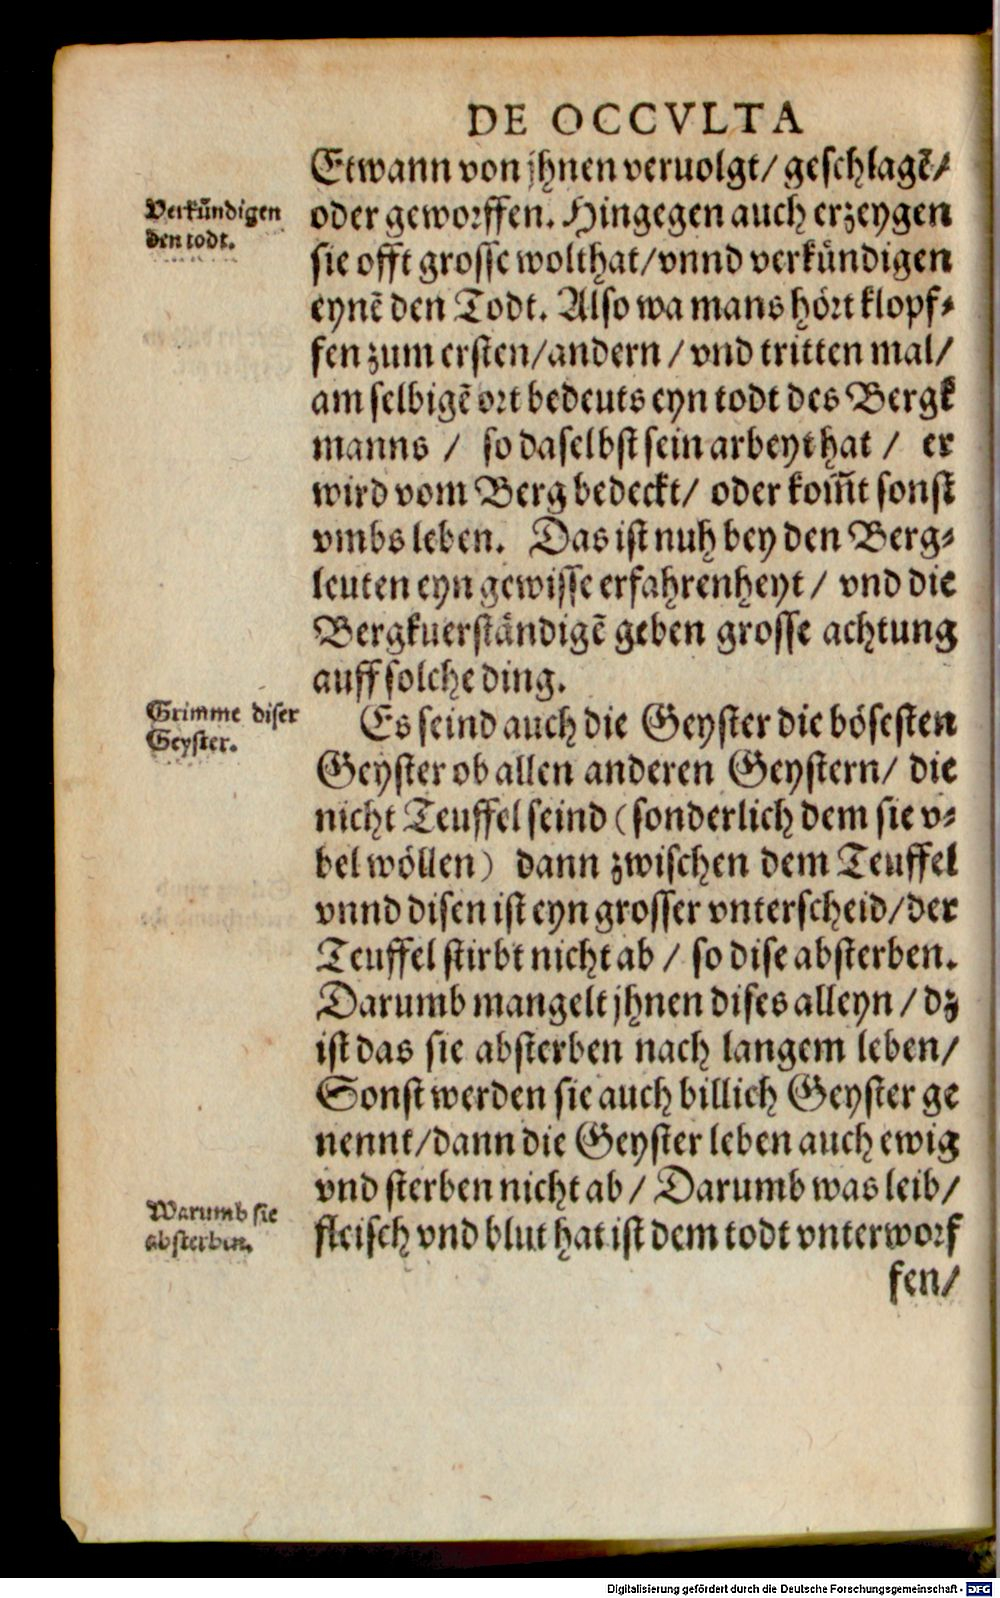 DE OCCVLTA
Etwann von jhnen veruolgt/ geschlagẽ/
oder geworffen. Hingegen auch erzeygen
sie offt grosse wolthat/vnnd verkündigen
eynẽ den Todt. Also wa mans hört klopf-
fen zum ersten/andern / vnd tritten mal/
am selbigẽ ort bedeuts eyn todt des Bergk
manns / so daselbst sein arbeyt hat / er
wird vom Berg bedeckt/ oder kom̃t sonst
vmbs leben. Das ist nuh bey den Berg-
leuten eyn gewisse erfahrenheyt / vnd die
Bergkuerständigẽ geben grosse achtung
auff solche ding.
Es seind auch die Geyster die bösesten
Geyster ob allen anderen Geystern/ die
nicht Teuffel seind (sonderlich dem sie v-
bel wöllen) dann zwischen dem Teuffel
vnnd disen ist eyn grosser vnterscheid/der
Teuffel stirbt nicht ab / so dise absterben.
Darumb mangelt jhnen dises alleyn / dz
ist das sie absterben nach langem leben/
Sonst werden sie auch billich Geyster ge
nennt/dann die Geyster leben auch ewig
vnd sterben nicht ab / Darumb was leib/
fleisch vnd blut hat ist dem todt vnterworf
fen/
Verkündigen
den todt.
Grimme diser
Geyster.
Warumb sie
absterben.
Digitalisierung gefördert durch die Deutsche Forschungsgemeinschaft - DFG